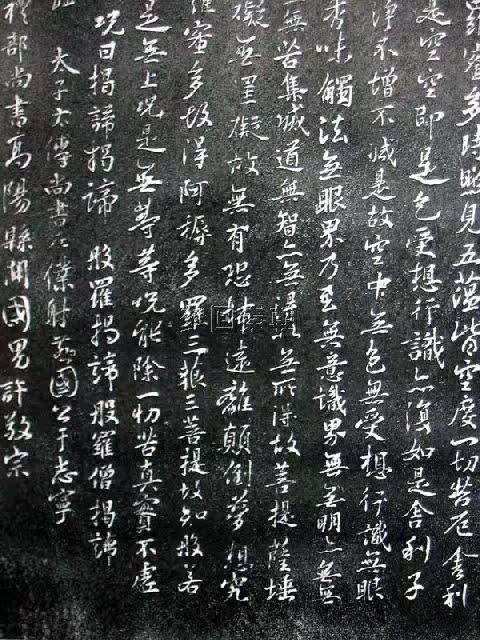 羅蜜多時照見五蘊皆空度一切苦厄舍利
是空空即是色受想行識亦復如是舍利子
淨不增不減是故空中無色無受想行識無眼
香味觸法無眼界乃至無意識界無無明亦無無
無苦集滅道無智亦無得以無所得故菩提薩埵
礙無罣礙故無有恐怖遠離顛倒夢想究
羅蜜多故得阿耨多羅三藐三菩提故知般若
是無上呪是無等等呪能除一切苦真實不虛
呪曰揭諦揭諦 般羅揭諦 般羅僧揭諦
太子太傅尚書左僕射燕國公于志寧
禮部尚書高陽縣開國男許敬宗